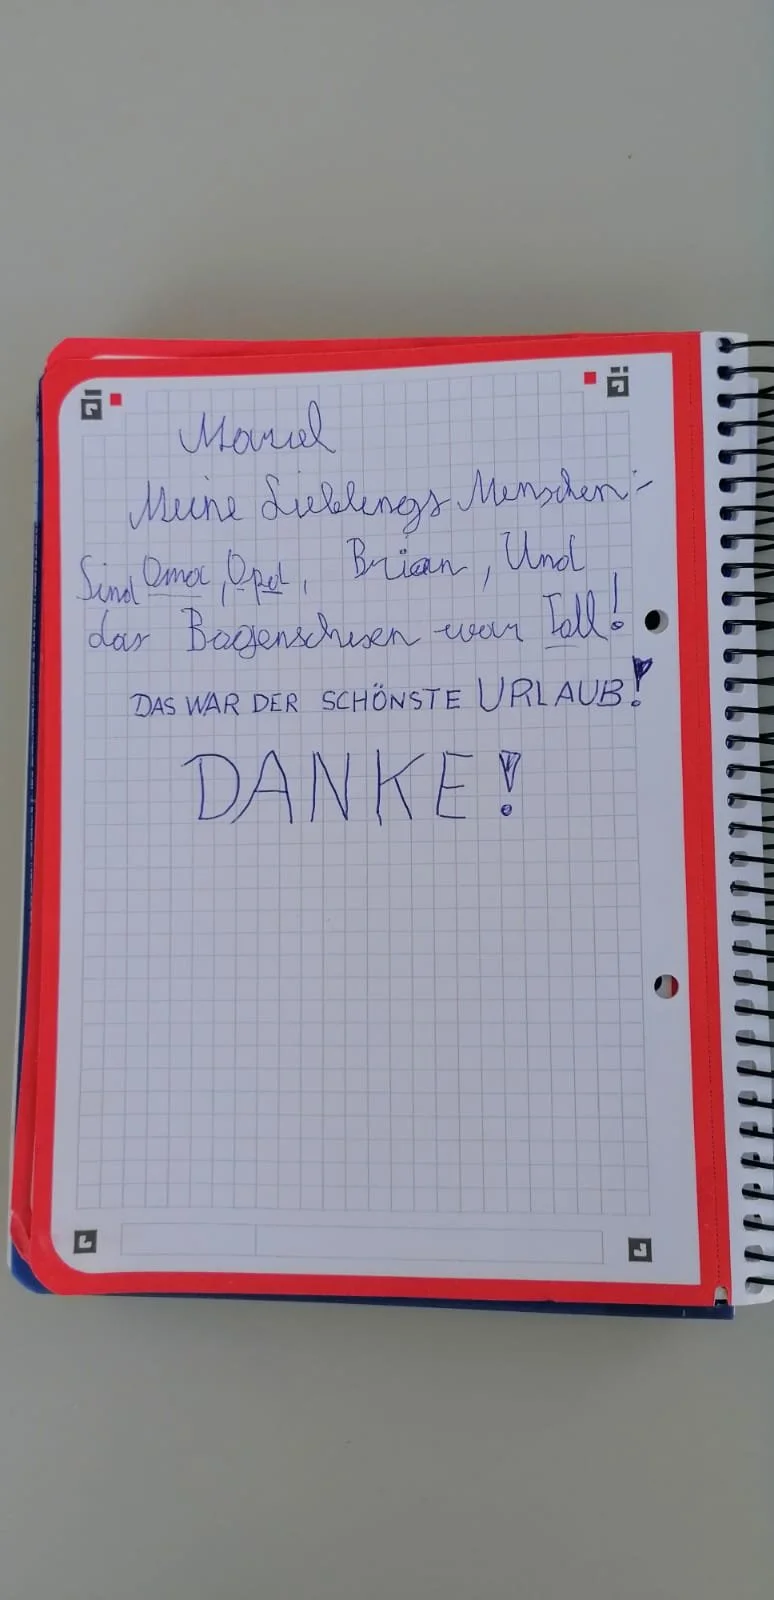 Mariel
Meine Lieblings Menschen:-
Sind Oma, Opa, Brian, Und
das Bogenschisen war Toll!
DAS WAR DER SCHÖNSTE URLAUB!
DANKE!